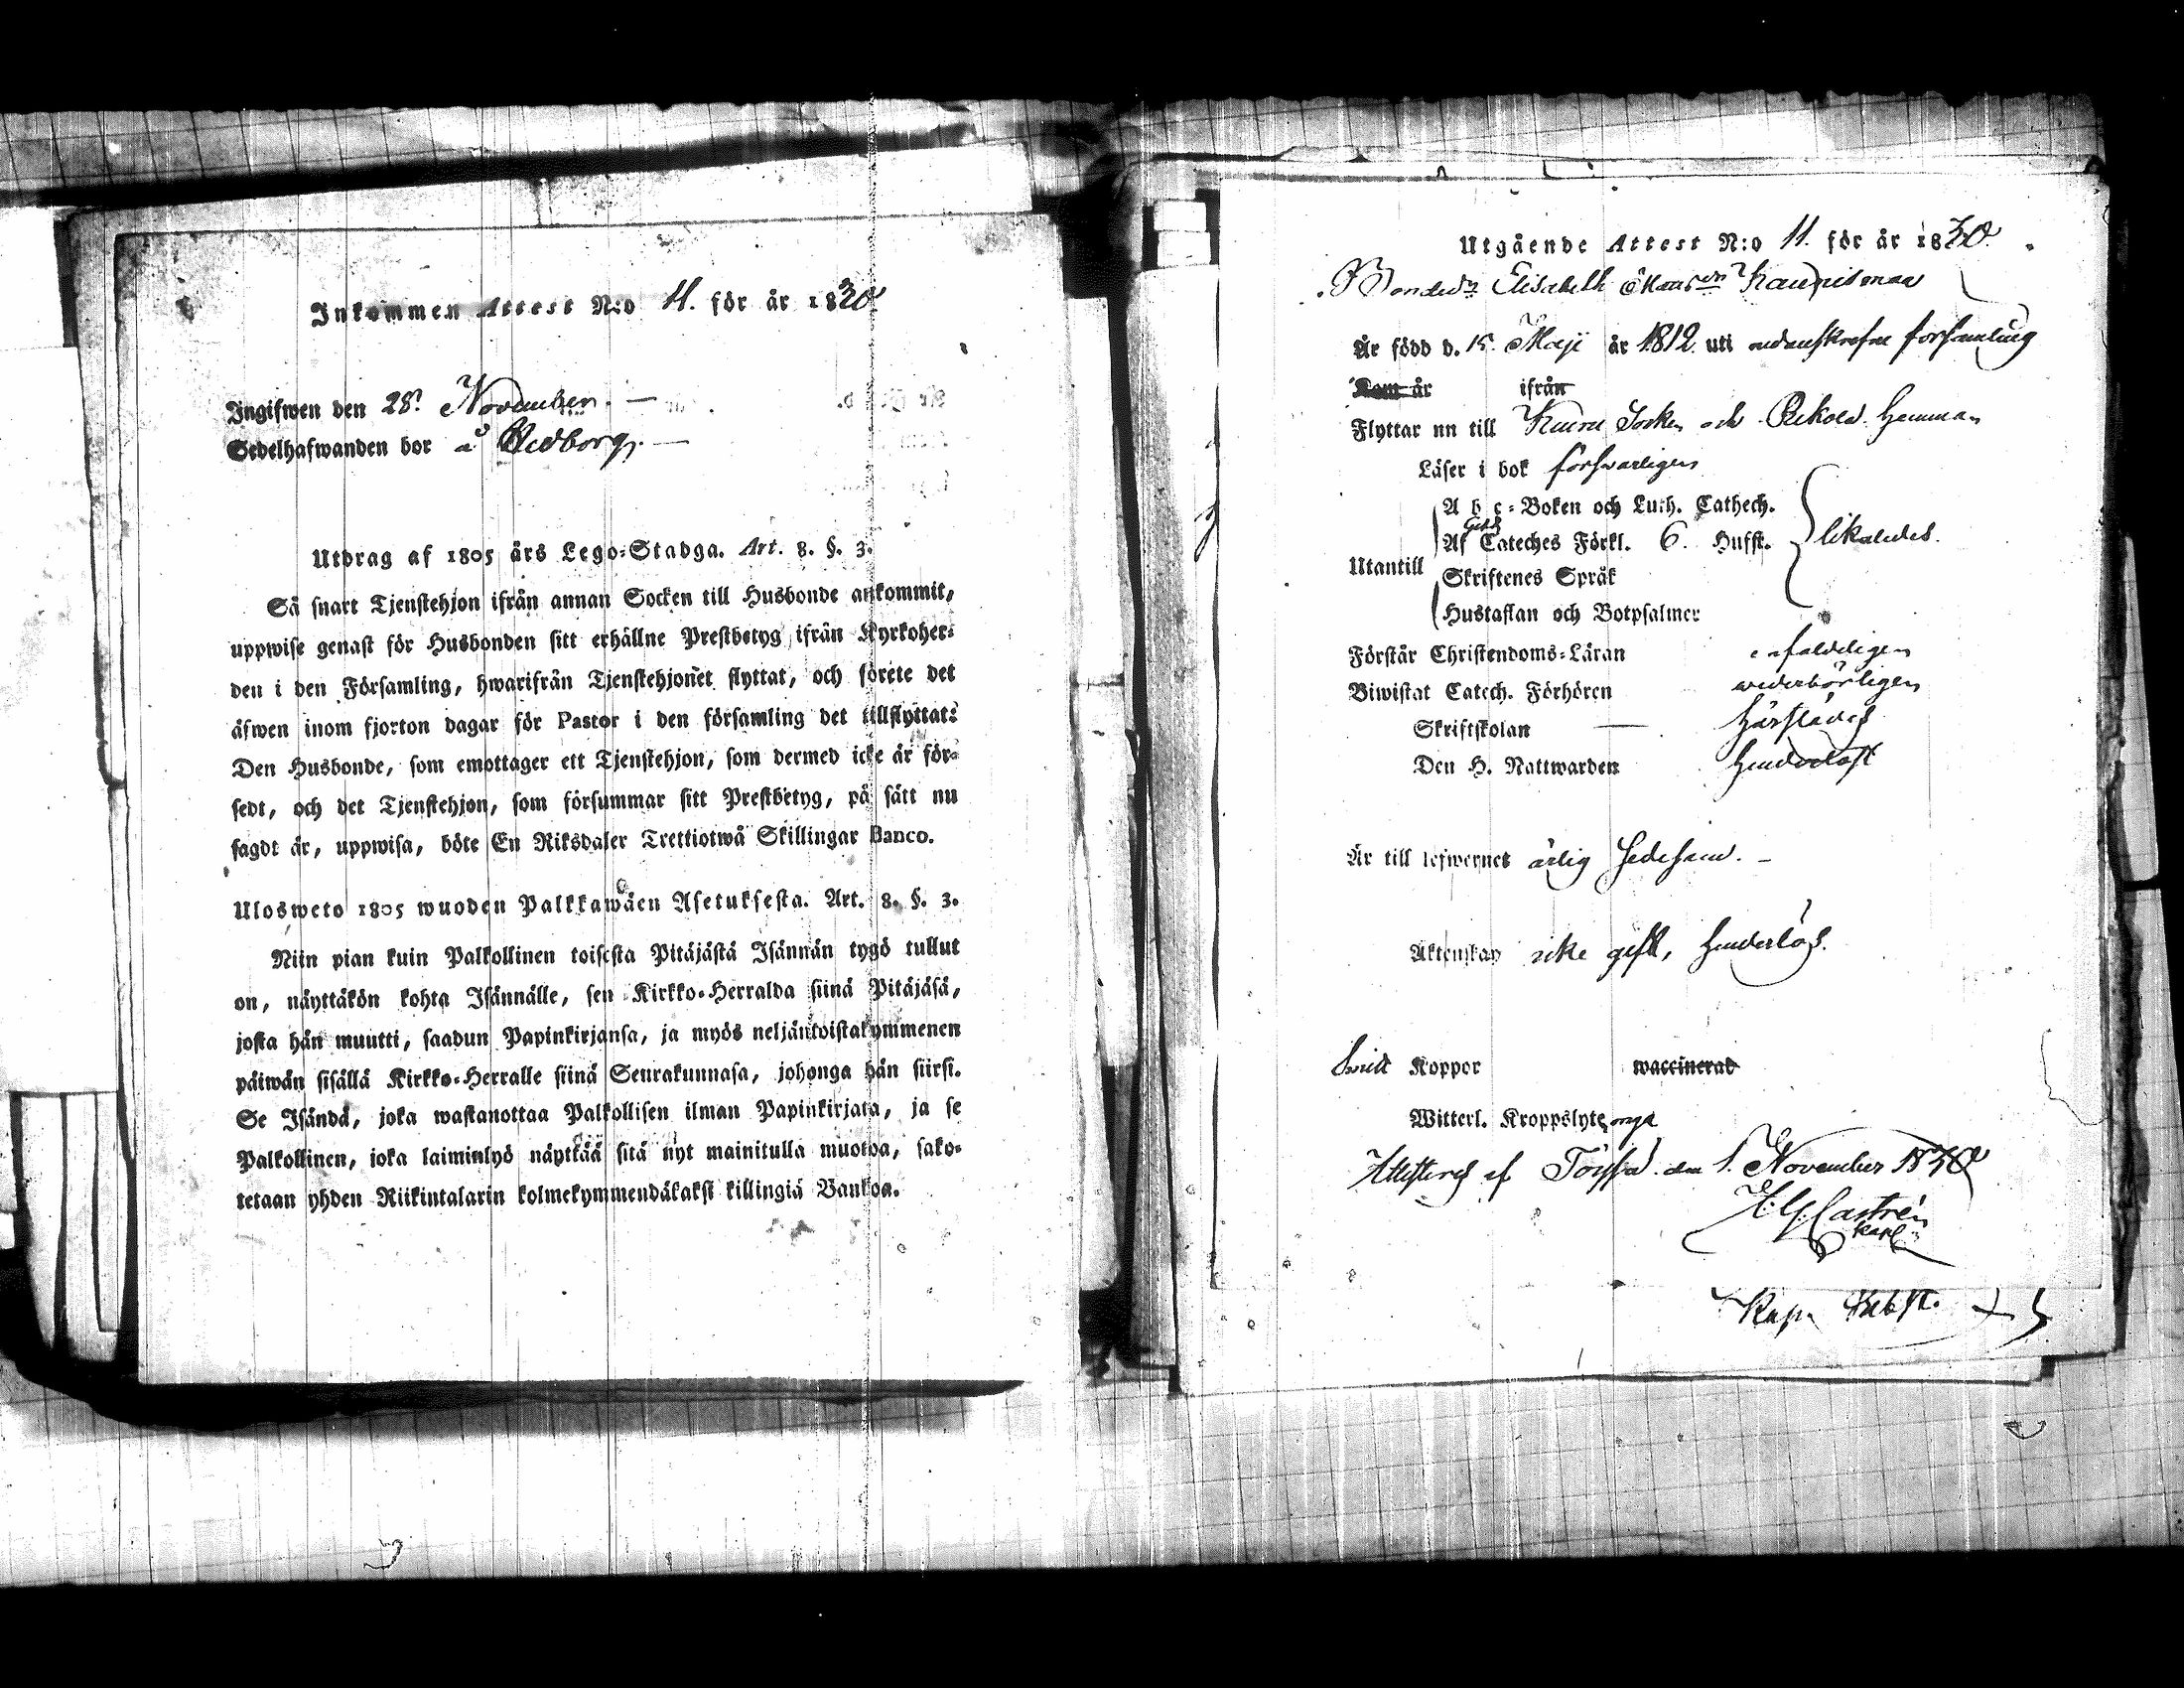 Inkommen Attest N:o 11. för år 1830.
Ingifwen den 28. November. —
Sedelhafwanden bor å —
Utdrag af 1805 års Lego-Stadga. Art. 8. §. 3.
Så snart Tjenstehjon ifrån annan Socken till Husbonde ankommit,
uppwise genast för Husbonden sitt erhållne Prestbetyg ifrån Kyrkoher-
den i den Församling, hwarifrån Tjenstehjonet flyttat, och förete det
äfwen inom fjorton dagar för Pastor i den församling det tillflyttat:
Den Husbonde, som emottager ett Tjenstehjon, som dermed icke är för-
sedt, och det Tjenstehjon, som försummar sitt Prestbetyg, på sätt nu
sagdt är, uppwisa, böte En Riksdaler Trettiotwå Skillingar Banco.
Ulosweto 1805 wuoden Palkkawäen Asetuksesta. Art. 8. §. 3.
Niin pian kuin Palkollinen toisesta Pitäjästä Isännän tygö tullut
on, näyttäkön kohta Isännälle, sen Kirkko-Herralda siinä Pitäjäsä,
josta hän muutti, saadun Papinkirjansa, ja myös neljäntoistakymmenen
päiwän sisällä Kirkko-Herralle siinä Seurakunnasa, johonga hän siirsi.
Se Isändä, joka wastanottaa Palkollisen ilman Papinkirjata, ja se
Palkollinen, joka laiminlyö näyttää sitä nyt mainitulla muotoa, sako-
tetaan yhden Riikintalarin kolmekymmendäkaksi killingiä Bankoa.
Utgående Attest N:o 11. för år 1830.
Elisabeth
Är född d. 15. Maji år 1812 uti församling
Kom år ifrån
Flyttar nu till Socken och Hemman
Läser i bok försvarligen
A b c-Boken och Luth. Cathech.
Af Cateches Förkl. 6. Hufst. likaledes.
Utantill
Skriftenes Språk
Hustaflan och Botpsalmer
Förstår Christendoms-Läran enfaldeligen
Biwistat Catech. Förhören wederbörligen
Skriftskolan —
Den H. Nattwarden
Är till lefwernet ärlig sedesam. —
Äktenskap icke gift, hinderlös.
Koppor waccinerad
Witterl. Kroppslyte
November 1830
Castrén